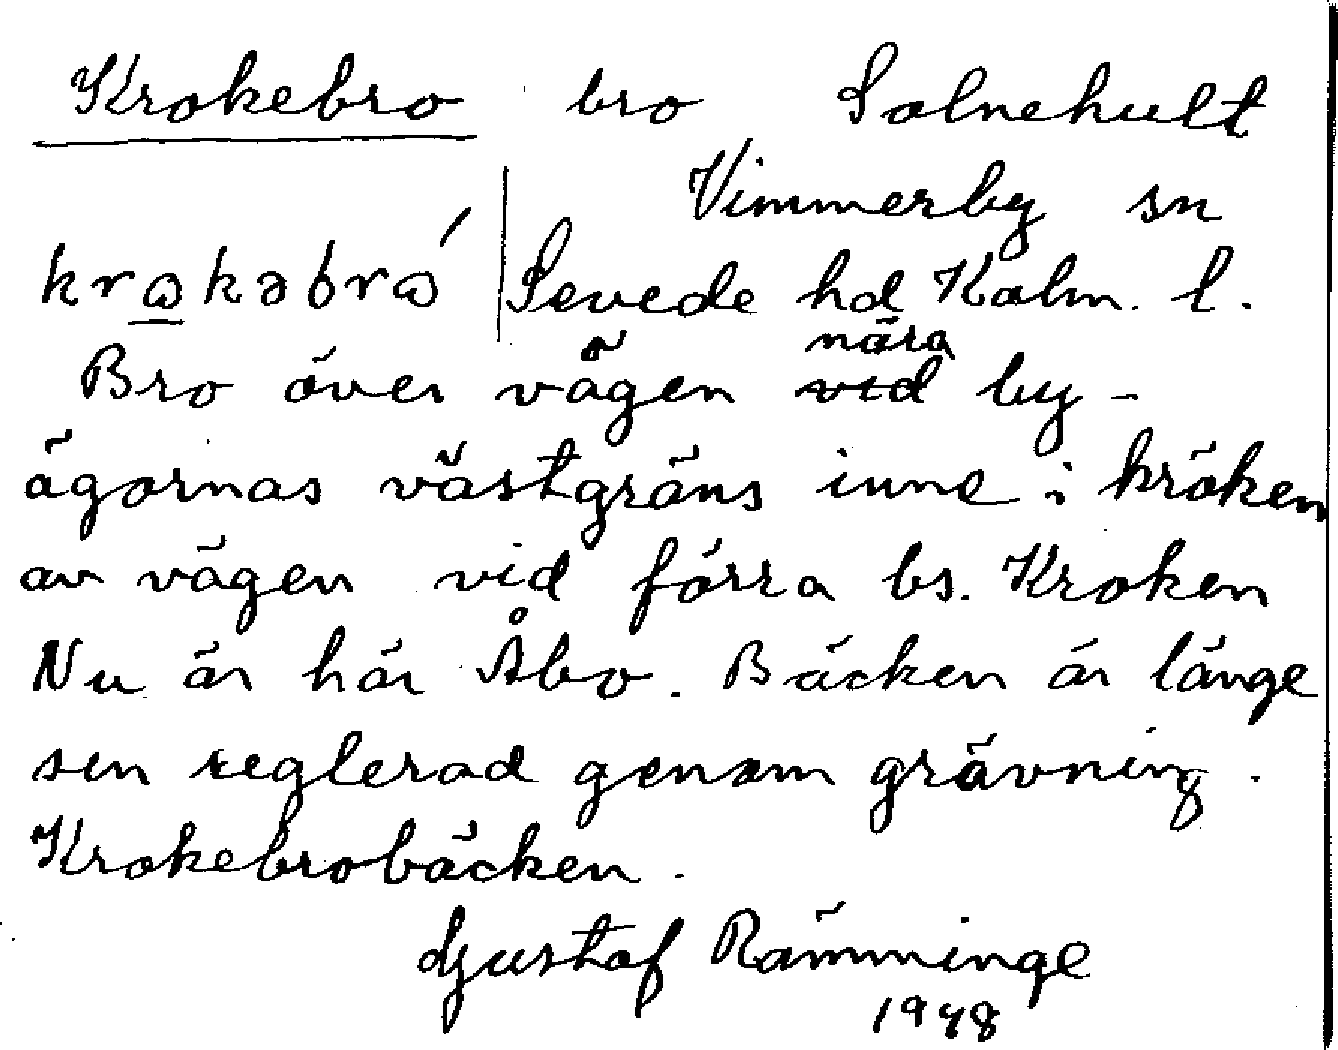 Krokebro bro Solnehult
Vimmerby sn
krɷkəbrɷ́ Sevede hd Kalm. l.
Bro över vägen vid nära by-
ägornas västgräns inne i kröken
av vägen vid förra bs. Kroken
Nu är här Åbo. Bäcken är länge
sen reglerad genom grävning.
Krokebrobäcken.
Gustaf Rämminge
1948